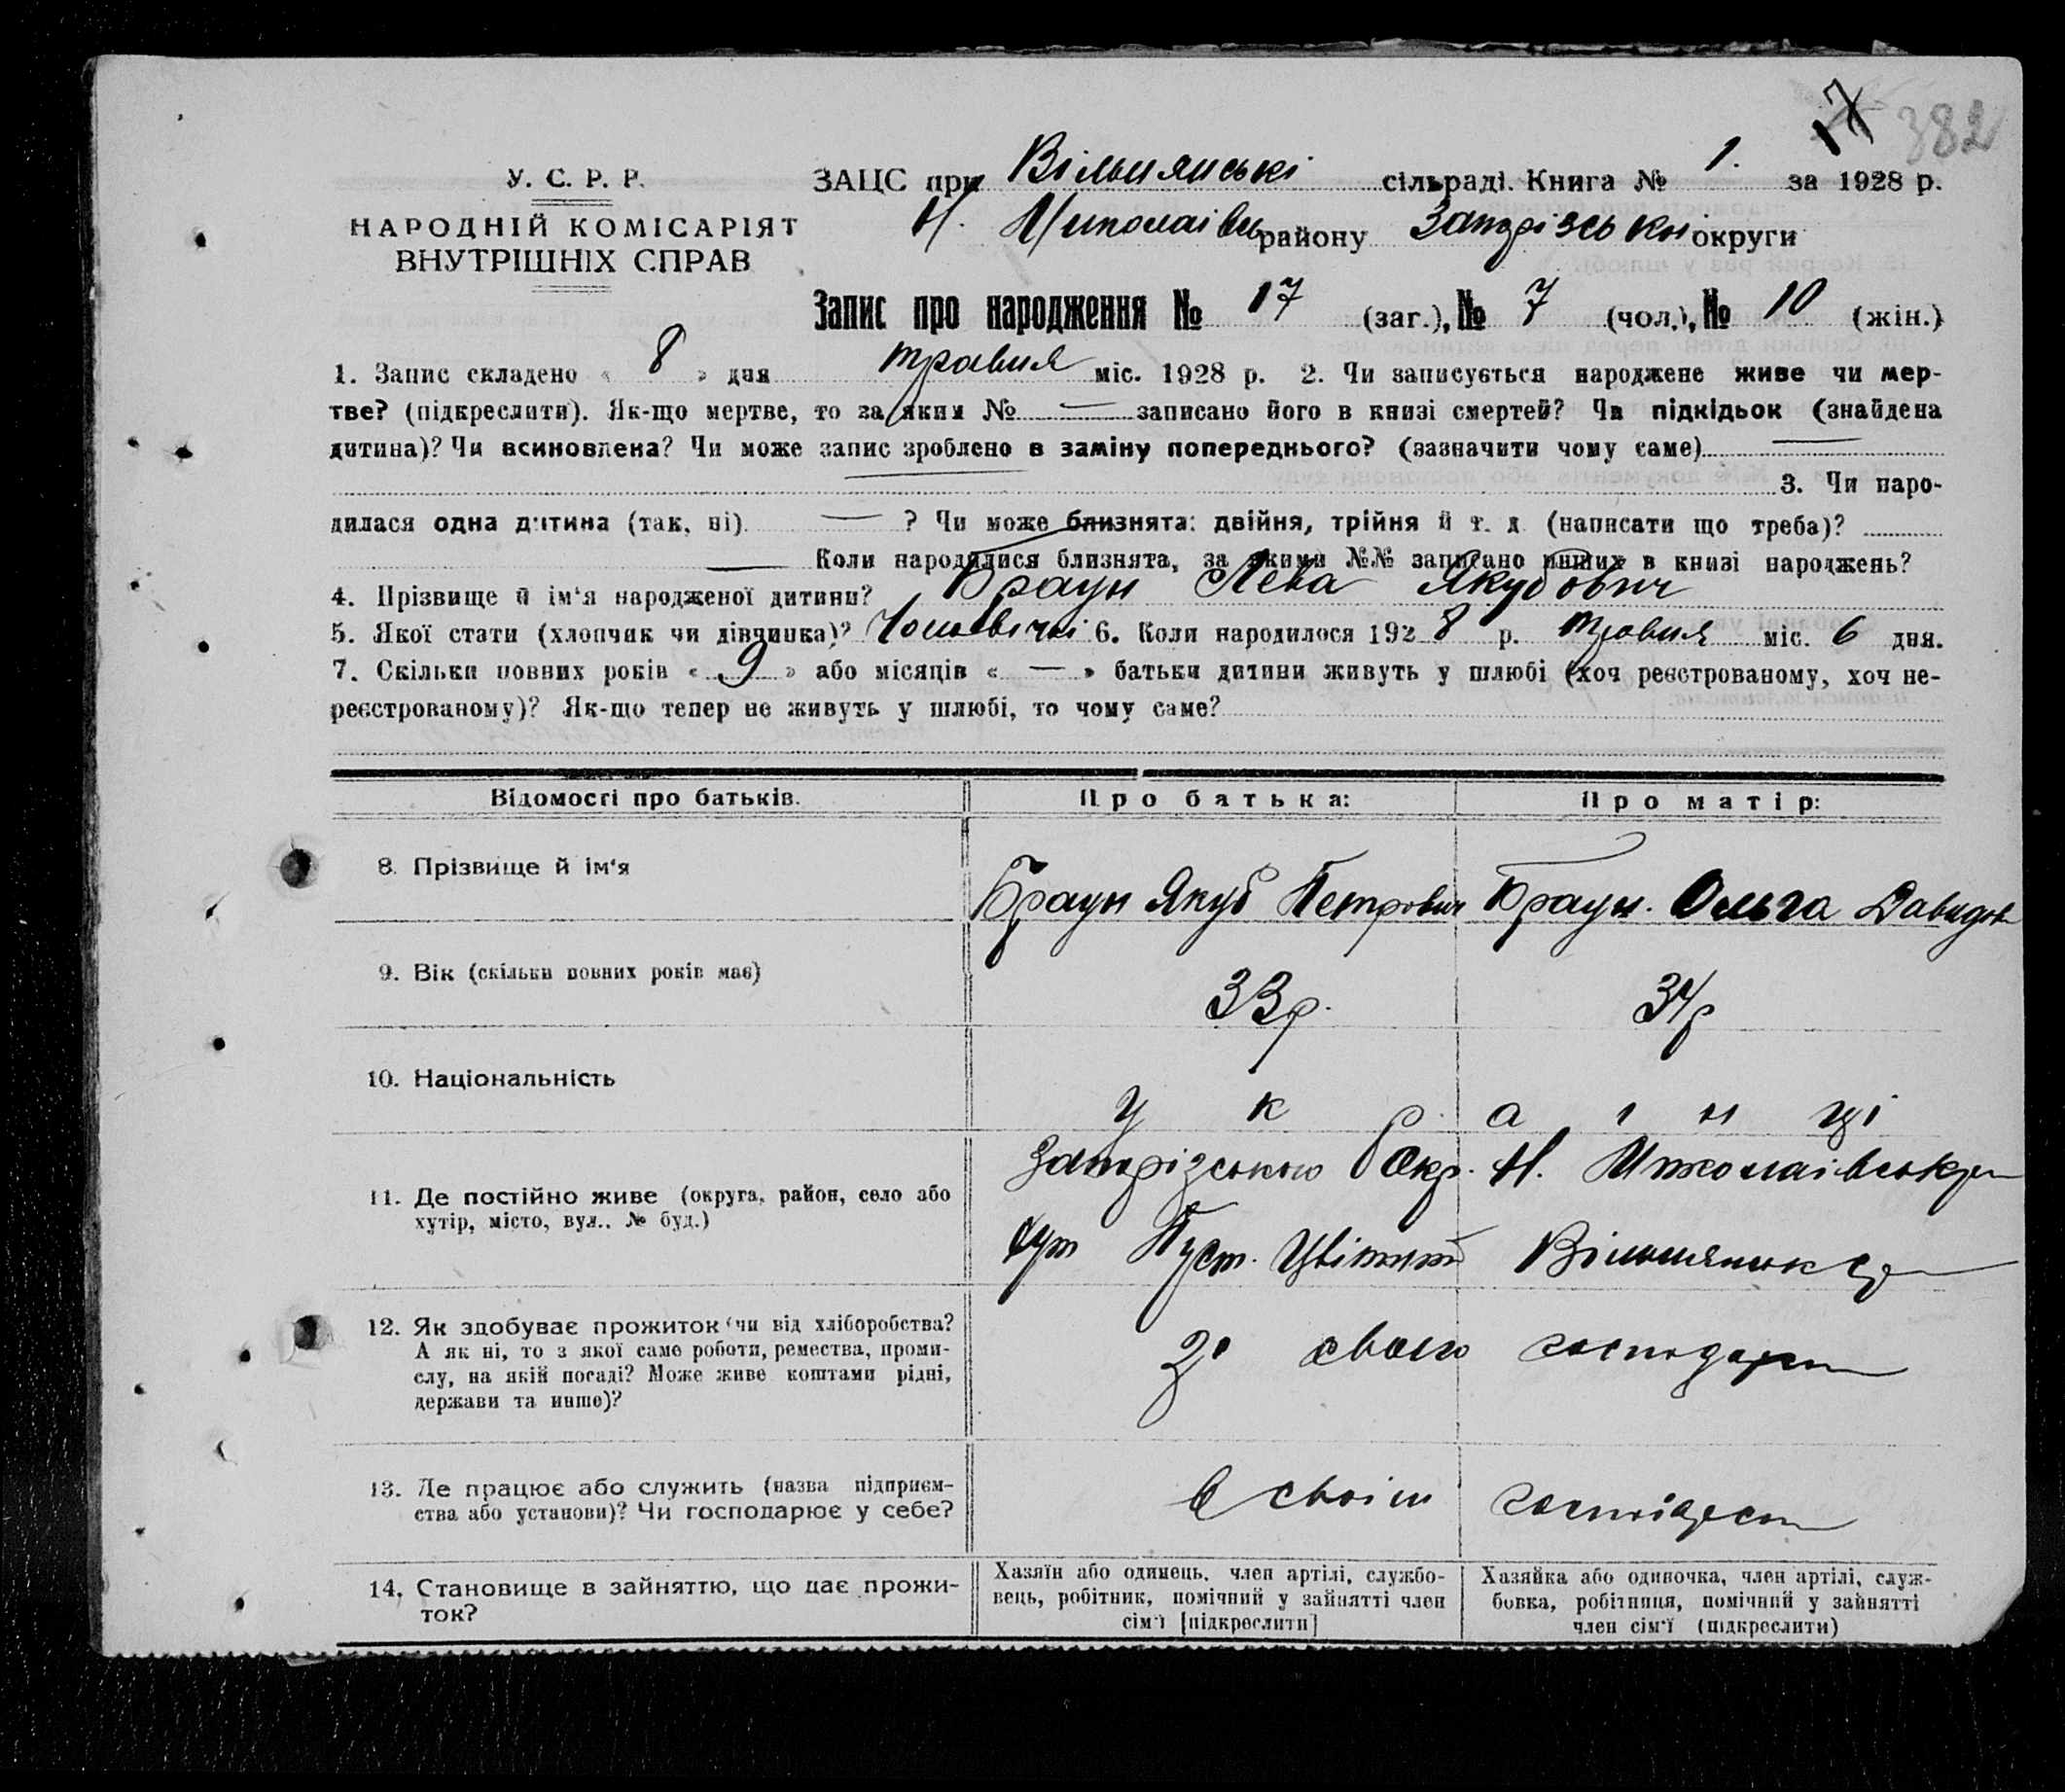 17 382
У. С. Р. Р.
НАРОДНІЙ КОМІСАРІЯТ
ВНУТРІШНІХ СПРАВ
ЗАЦС при Вільнянські сільраді. Книга № 1. за 1928 р.
Н. Миколаівськ району Запорізьки округи
Запис про народження № 17 (заг.), № 7 (чол.), № 10 (жін.)
1. Запис складено « 8 » дня травня міс. 1928 р. 2. Чи записується народжене живе чи мер-
тве? (підкреслити). Як-що мертве, то за яким № — записано його в книзі смертей? Чи підкідьок (знайдена
дитина)? Чи всиновлена? Чи може запис зроблено в заміну попереднього? (зазначити чому саме) —
3. Чи наро-
дилася одна дитина (так, ні) — ? Чи може близнята: двійня, трійня й т. д. (написати що треба)?
— Коли народилися близнята, за якими №№ записано инших в книзі народжень?
4. Прізвище й ім'я народженої дитини? Браун Лева Якубович
5. Якої стати (хлопчик чи дівчинка)? Чоловічкі 6. Коли народилося 1928 р. травня міс. 6 дня.
7. Скільки повних років « 9 » або місяців « — » батьки дитини живуть у шлюбі (хоч реєстрованому, хоч не-
реєстрованому)? Як-що тепер не живуть у шлюбі, то чому саме?
Відомості про батьків. Про батька: Про матір:
8. Прізвище й ім'я Браун Якуб Петрович Браун. Ольга Давидов
9. Вік (скільки повних років має) 33 р. 34 р
10. Національність у к р а і н ці
11. Де постійно живе (округа, район, село або
хутір, місто, вул.. № буд.)
Запорізською Окр. Н. Миколаівськ
хут Пуст. Цвіт
12. Як здобуває прожиток (чи від хліборобства?
А як ні, то з якої само роботи, ремества, проми-
слу, на якій посаді? Може живе коштами рідні,
держави та инше)?
Зі свого господарст
13. Де працює або служить (назва підприєм-
ства або установи)? Чи господарює у себе?
в своім
14. Становище в зайняттю, що дає прожи-
ток?
Хазяїн або одинець, член артілі, службо-
вець, робітник, помічний у зайнятті член
сім'ї [підкреслити]
Хазяйка або одиночка, член артілі, служ-
бовка, робітниця, помічний у зайнятті
член сім'ї (підкреслити)